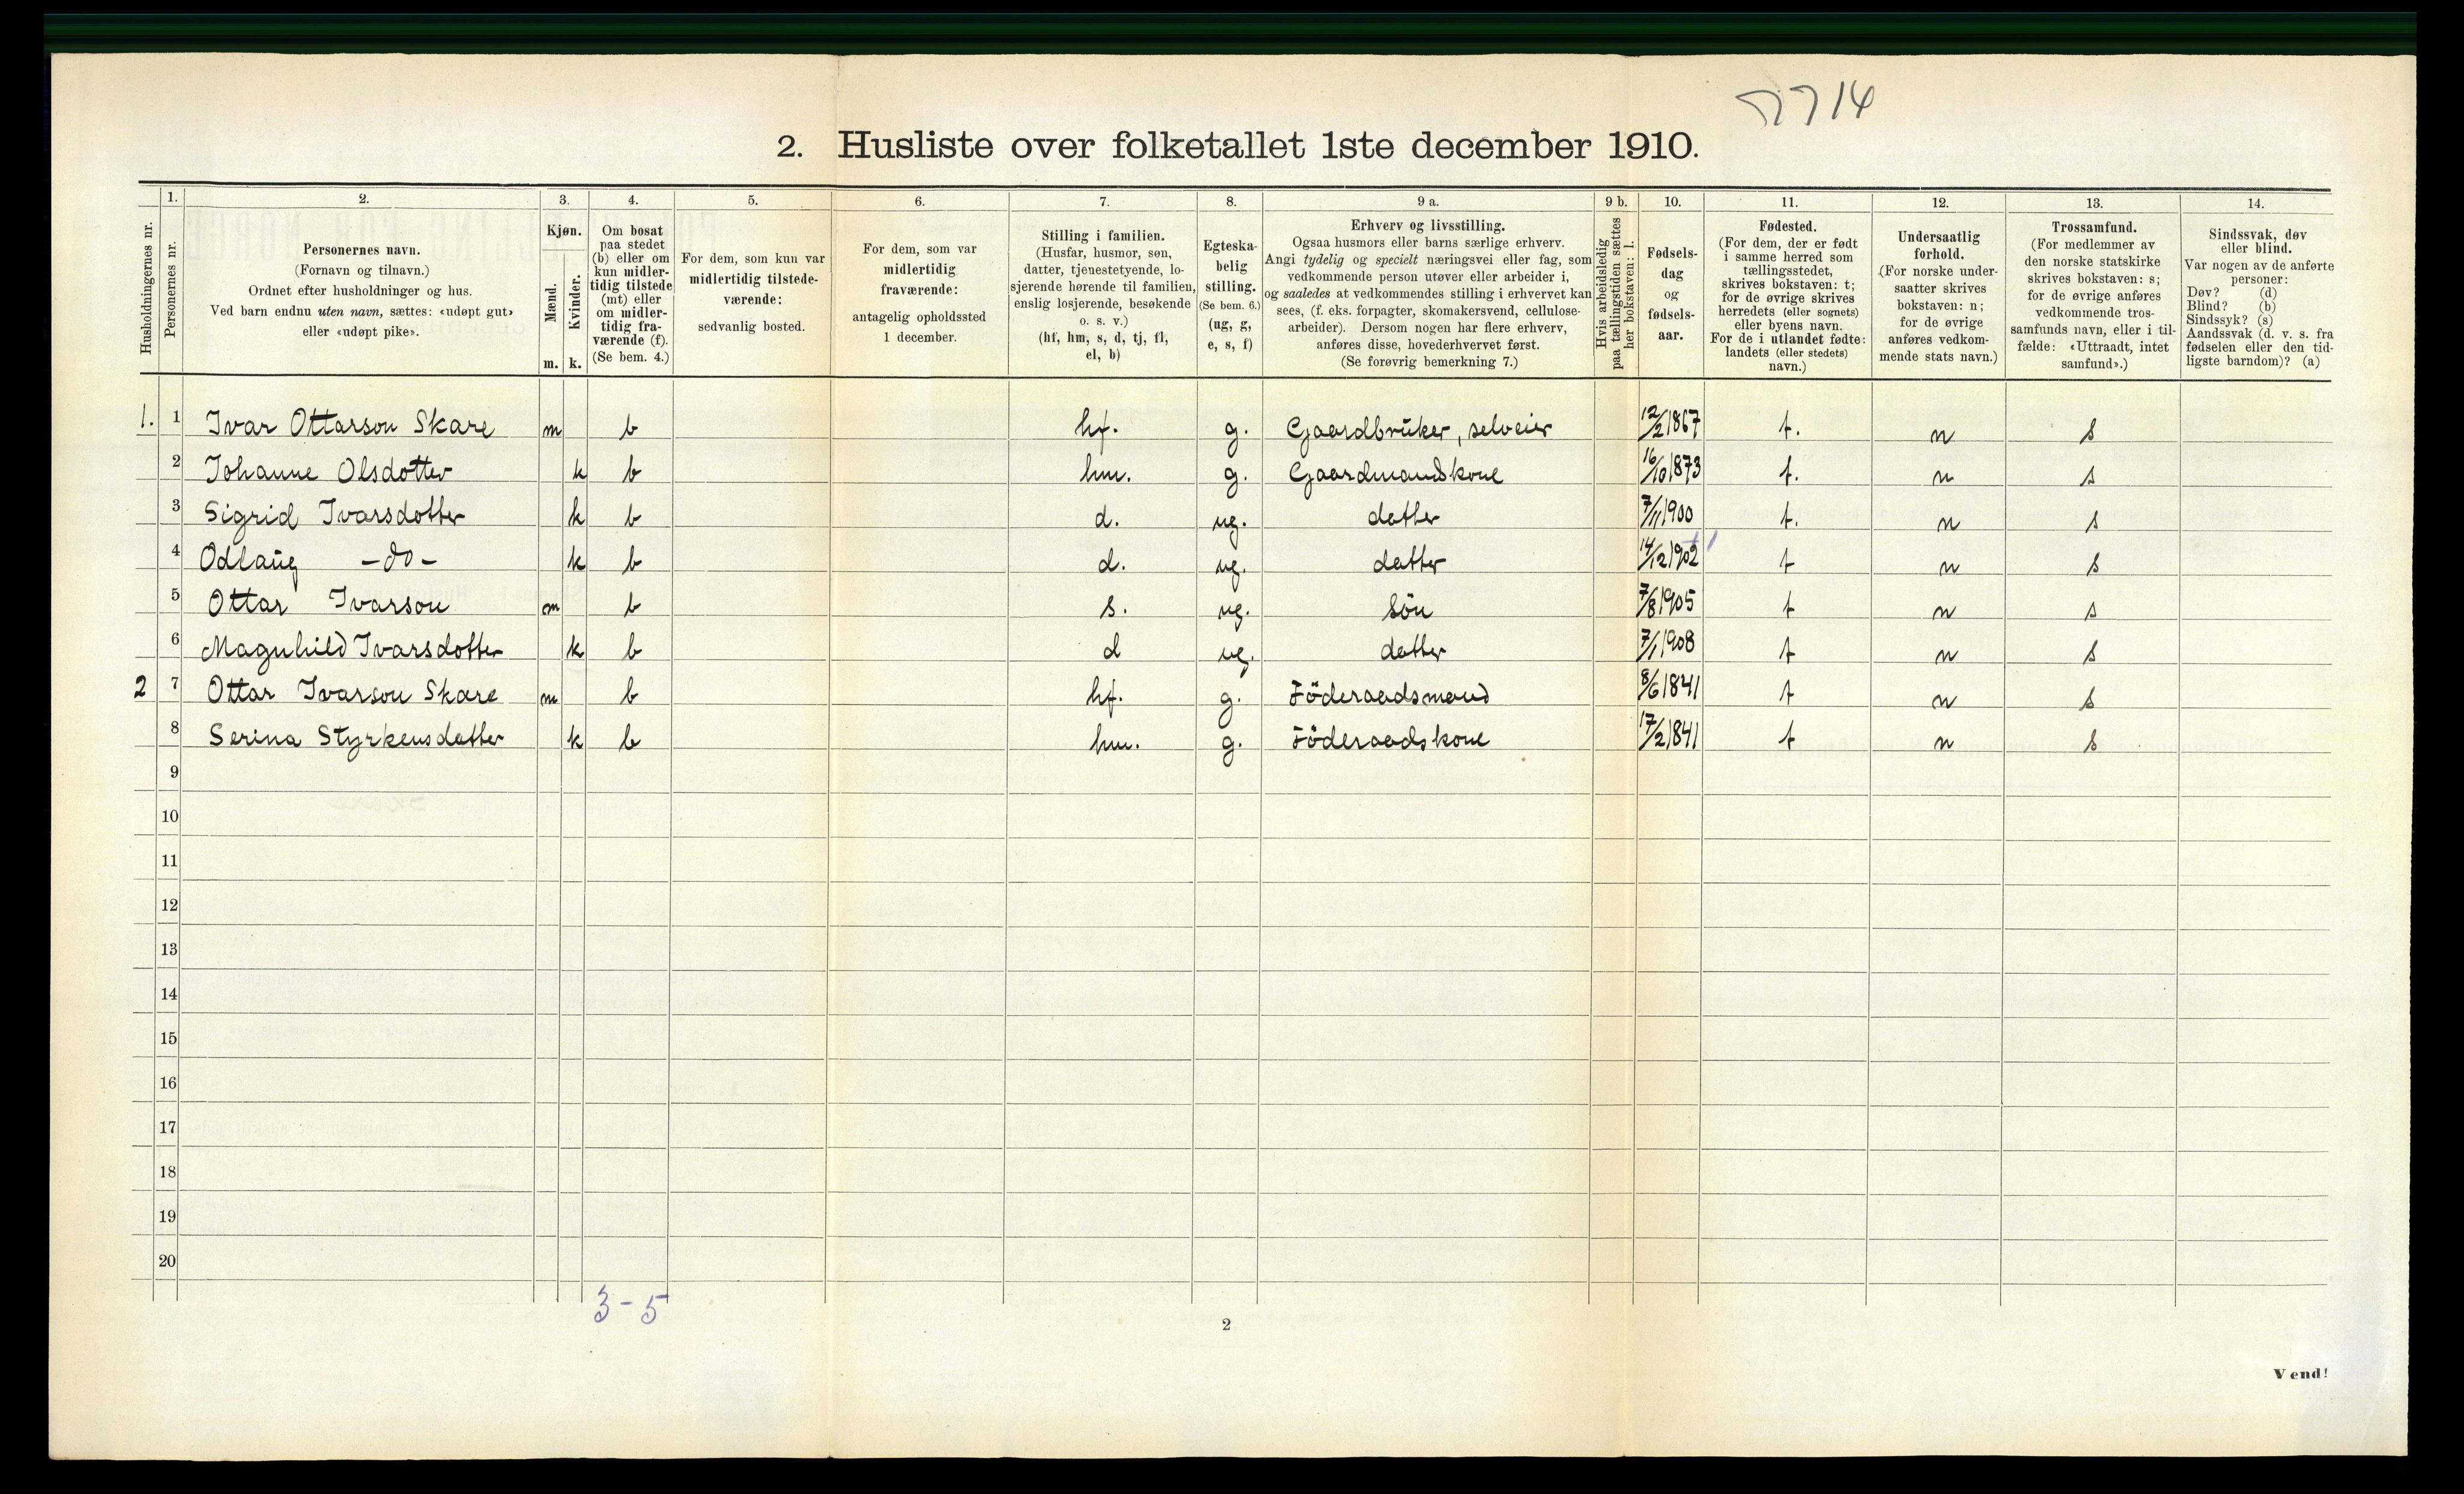 7714
2. Husliste over folketallet 1ste december 1910.
Husholdningernes nr.
1.
Personernes nr.
2.
Personernes navn.
(Fornavn og tilnavn.)
Ordnet efter husholdninger og hus.
Ved barn endnu uten navn, sættes: «udøpt gut»
eller «udøpt pike».
3.
Kjøn.
Mænd.
Kvinder.
m. k.
4.
Om bosat
paa stedet
(b) eller om
kun midler-
tidig tilstede
(mt) eller
om midler-
tidig fra-
værende (f).
(Se bem. 4.)
5.
For dem, som kun var
midlertidig tilstede-
værende:
sedvanlig bosted.
6.
For dem, som var
midlertidig
fraværende:
antagelig opholdssted
1 december.
7.
Stilling i familien.
(Husfar, husmor, søn,
datter, tjenestetyende, lo-
sjerende hørende til familien,
enslig losjerende, besøkende
o. s. v.)
(hf, hm, s, d, tj, fl,
el, b)
8.
Egteska-
belig
stilling.
(Se bem. 6.)
(ug, g,
e, s, f)
9 a.
Erhverv og livsstilling.
Ogsaa husmors eller barns særlige erhverv.
Angi tydelig og specielt næringsvei eller fag, som
vedkommende person utøver eller arbeider i,
og saaledes at vedkommendes stilling i erhvervet kan
sees, (f. eks. forpagter, skomakersvend, cellulose-
arbeider). Dersom nogen har flere erhverv,
anføres disse, hovederhvervet først.
(Se forøvrig bemerkning 7.)
9 b.
Hvis arbeidsledig
paa tællingstiden sættes
her bokstaven: l.
10.
Fødsels-
dag
og
fødsels-
aar.
11.
Fødested.
(For dem, der er født
i samme herred som
tællingsstedet,
skrives bokstaven: t;
for de øvrige skrives
herredets (eller sognets)
eller byens navn.
For de i utlandet fødte:
landets (eller stedets)
navn.)
12.
Undersaatlig
forhold.
(For norske under-
saatter skrives
bokstaven: n;
for de øvrige
anføres vedkom-
mende stats navn.)
13.
Trossamfund.
(For medlemmer av
den norske statskirke
skrives bokstaven: s;
for de øvrige anføres
vedkommende tros-
samfunds navn, eller i til-
fælde: «Uttraadt, intet
samfund».)
14.
Sindssvak, døv
eller blind.
Var nogen av de anførte
personer:
Døv? (d)
Blind? (b)
Sindssyk? (s)
Aandssvak (d. v. s. fra
fødselen eller den tid-
ligste barndom)? (a)
1. 1 Ivar Ottarson Skare m b hf. g. Gaardbruker, selveier 12/2 1867 t. n s
2 Johanne Olsdotter k b hm. g. Gaardmandskone 16/10 1873 t. n s
3 Sigrid Ivarsdotter k b d. ug. datter 7/11 1900 t. n s
4 Odlaug -do- k b d. ug. datter 14/12 1902 t n s
5 Ottar Ivarson m b s. ug. sön 7/8 1905 t n s
6 Magnhild Ivarsdotter k b d ug. datter 7/1 1908 t n s
2 7 Ottar Ivarson Skare m b hf. g. Föderaadsmand 8/6 1841 t n s
8 Serina Styrkensdatter k b hm. g. Föderaadskone 17/2 1841 t n s
9
10
11
12
13
14
15
16
17
18
19
20
3-5
2
Vend!